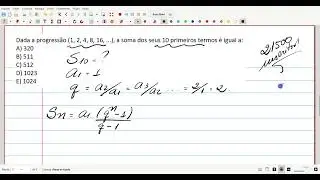 Dada a progressão (1, 2, 4, 8, 16, ...), a soma dos seus 10 primeiros termos é igual a:
A) 320
B) 511
C) 512
D) 1023
E) 1024
S10 = ?
a1 = 1
q = a2/a1 = a3/a2 ... = 2/1 = 2
Sn = a1 (q^n - 1)
q - 1
21500